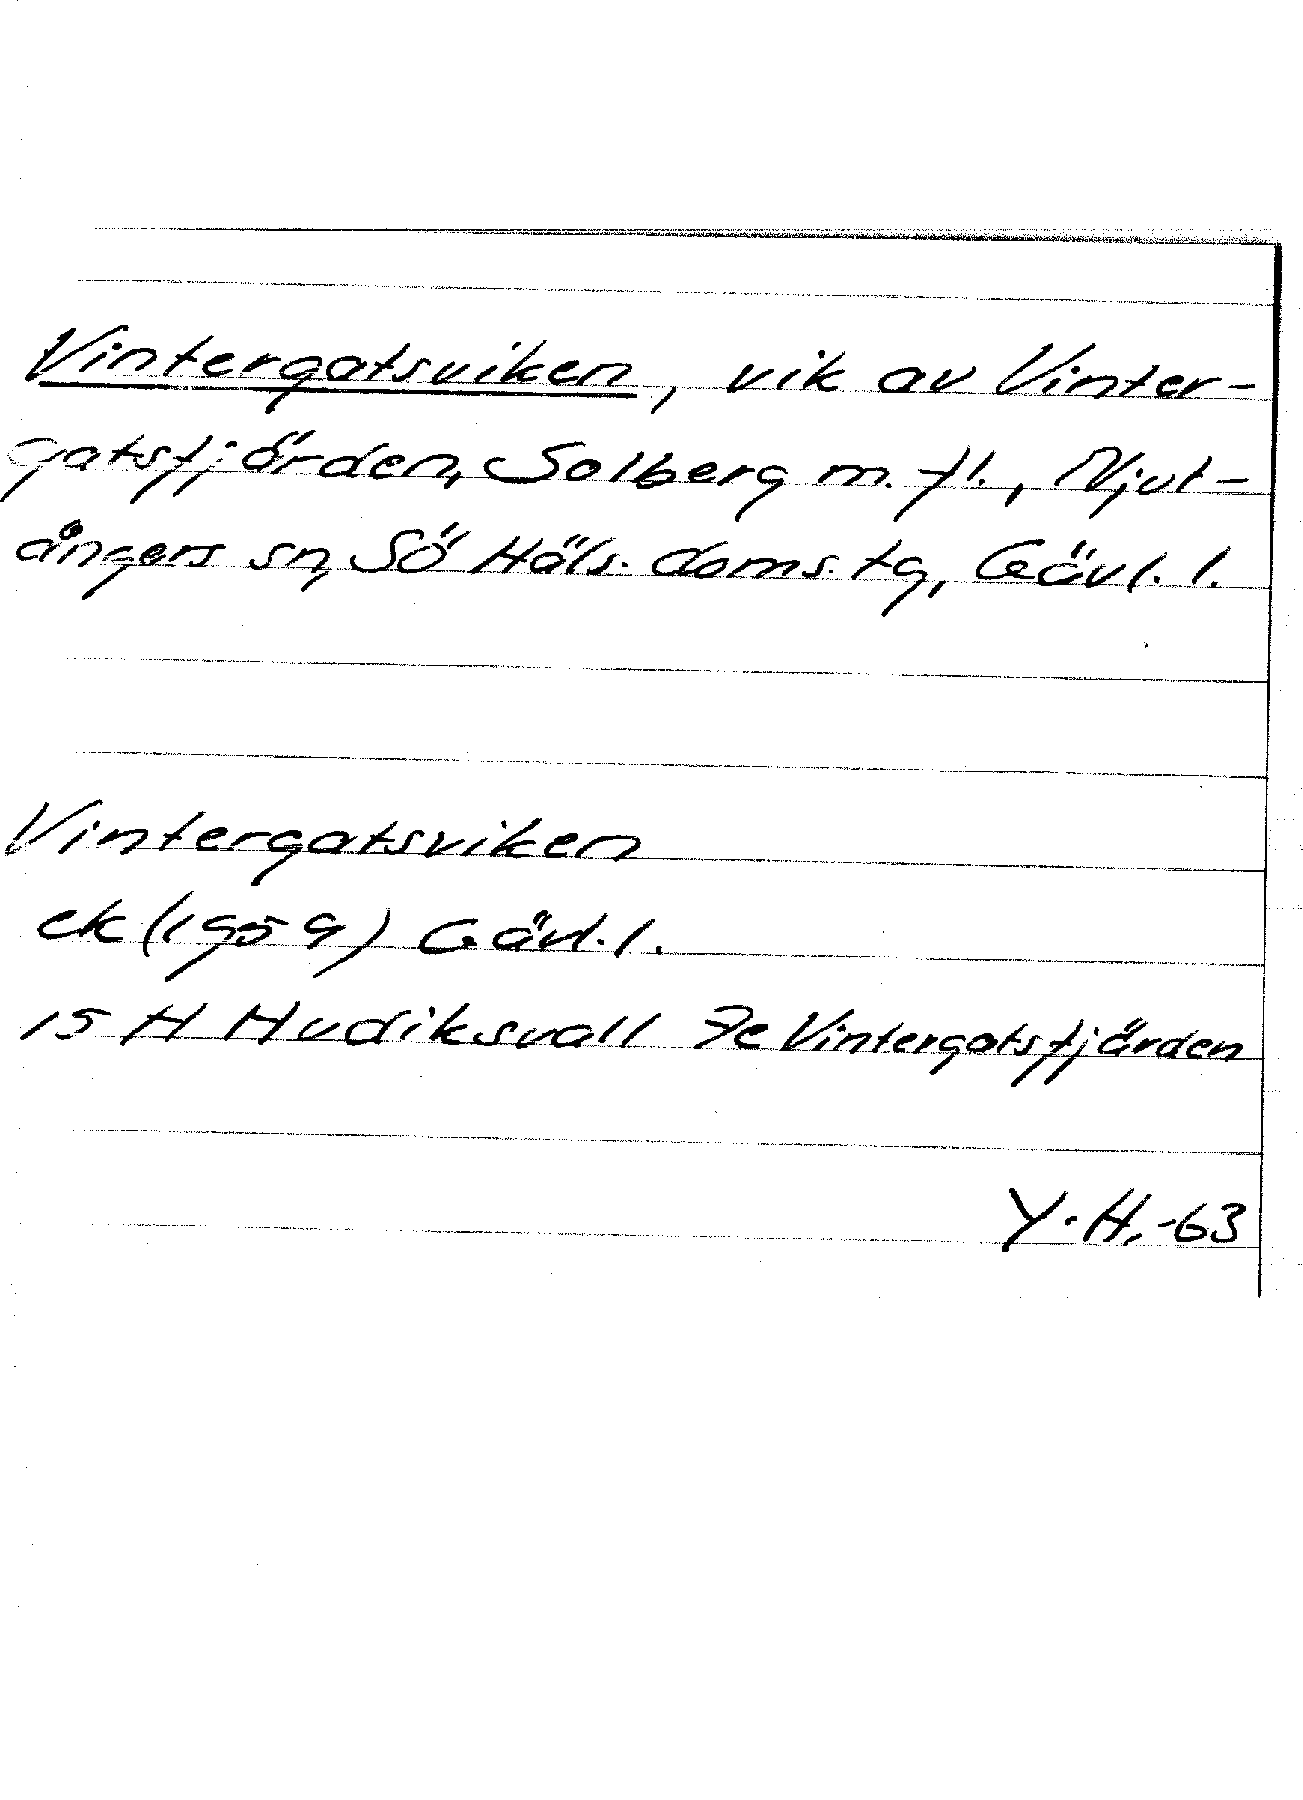 Vintergatsviken, vik av Vinter-
gatsfjärden, Solberg m. fl., Njut-
ångers sn, Sö Häls. doms. tg, Gävl. l.
Vintergatsviken
ek (1959) Gävl. l.
15 H Hudiksvall 7e Vintergatsfjärden
Y. H. -63